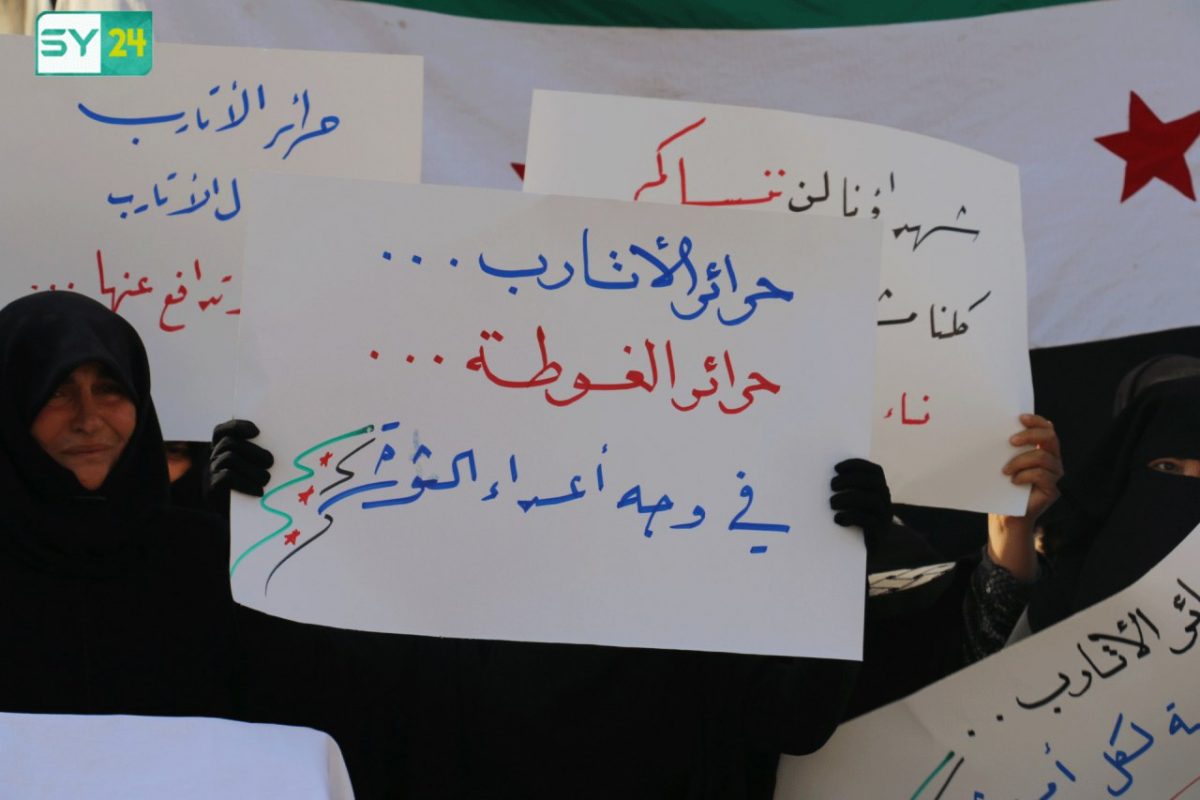 SY24
حرائر الأتارب
ل الأتارب
تدافع عنها ...
شهداؤنا لن ننساكم
كلنا
حرائر الأتارب ...
حرائر الغوطة ...
في وجه أعداء الثورة
الأتارب ..
لكل